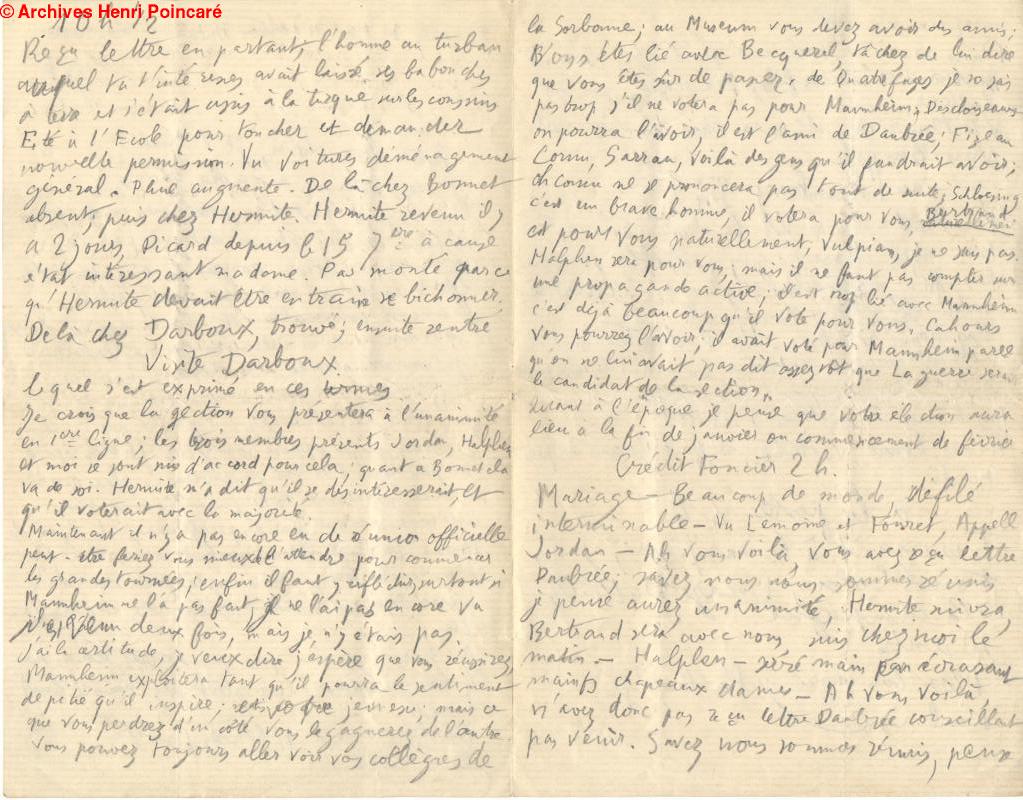 © Archives Henri Poincaré
10 h 1/2
Reçu lettre en partant, l'homme au turban
auquel tu t'intéresses avait laissé ses babouches
à terre et s'était assis à la turque sur les coussins
Eté à l'Ecole pour toucher et demander
nouvelle permission. Vu voitures déménagement
général. Pluie augmente. De là chez Bonnet
absent, puis chez Hermite. Hermite revenu il y
a 2 jours, Picard depuis le 15 7bre à cause
état intéressant madame. Pas monté parce
qu'Hermite devait être en train se bichonner.
De là chez Darboux, trouvé; ensuite rentré
Visite Darboux
lequel s'est exprimé en ces termes
Je crois que la section vous présentera à l'unanimité
en 1ere ligne; les trois membres présents Jordan, Halphen
et moi se sont mis d'accord pour cela; quant a Bonnet cela
va de soi. Hermite m'a dit qu'il se désintéresserait et
qu'il voterait avec la majorité.
Maintenant il n'y a pas encore eu de réunion officielle
peut-être feriez vous mieux d'attendre pour commencer
les grandes tournées; enfin il faut y réfléchir surtout si
Mannheim ne l'a pas fait, je ne l'ai pas encore vu
venu deux fois, mais je n'y étais pas.
J'ai la certitude, je veux dire j'espère que vous réussirez,
Mannheim exploitera tant qu'il pourra le sentiment
de pitié qu'il inspire; mais ce
que vous perdrez d'un côté vous le gagnerez de l'autre.
Vous pouvez toujours aller voir vos collègues de
la Sorbonne; au Museum vous devez avoir des amis;
Vous êtes lié avec Becquerel, tâchez de lui dire
que vous êtes sûr de passer. de Quatrefages je ne sais
pas trop s'il ne votera pas pour Mannheim; Descloiseaux
on pourra l'avoir, il est l'ami de Daubrée; Fizeau
Cornu, Sarrau, voilà des gens qu'il faudrait avoir;
ah Cornu ne se prononcera pas tout de suite, Schloesing
c'est un brave homme, il votera pour vous, Bertrand
est pour vous naturellement, Vulpian, je ne sais pas.
Halphen sera pour vous; mais il ne faut pas compter sur
une propagande active; il est trop lié avec Mannheim
c'est déjà beaucoup qu'il vote pour vous. Cahours
vous pourrez l'avoir; il avait voté pour Mannheim parce
qu'on ne lui avait pas dit assez tôt que Laguerre serait
le candidat de la section.
Quant à l'époque je pense que votre élection aura
lieu à la fin de janvier ou commencement de février
Crédit Foncier 2 h.
Mariage – Beaucoup de monde, défilé
interminable – Vu Lemoine et Fouret, Appell
Jordan – Ah vous voilà, vous avez reçu lettre
Daubrée; savez nous nous sommes réunis
je pense aurez unanimité, Hermite suivra
Bertrand sera avec nous suis chez moi le
matin. – Halphen – serré main en écrasant
mains chapeaux dames – Ah vous voilà
n'avez donc pas reçu lettre Daubrée conseillant
pas venir. Savez nous sommes réunis, peux